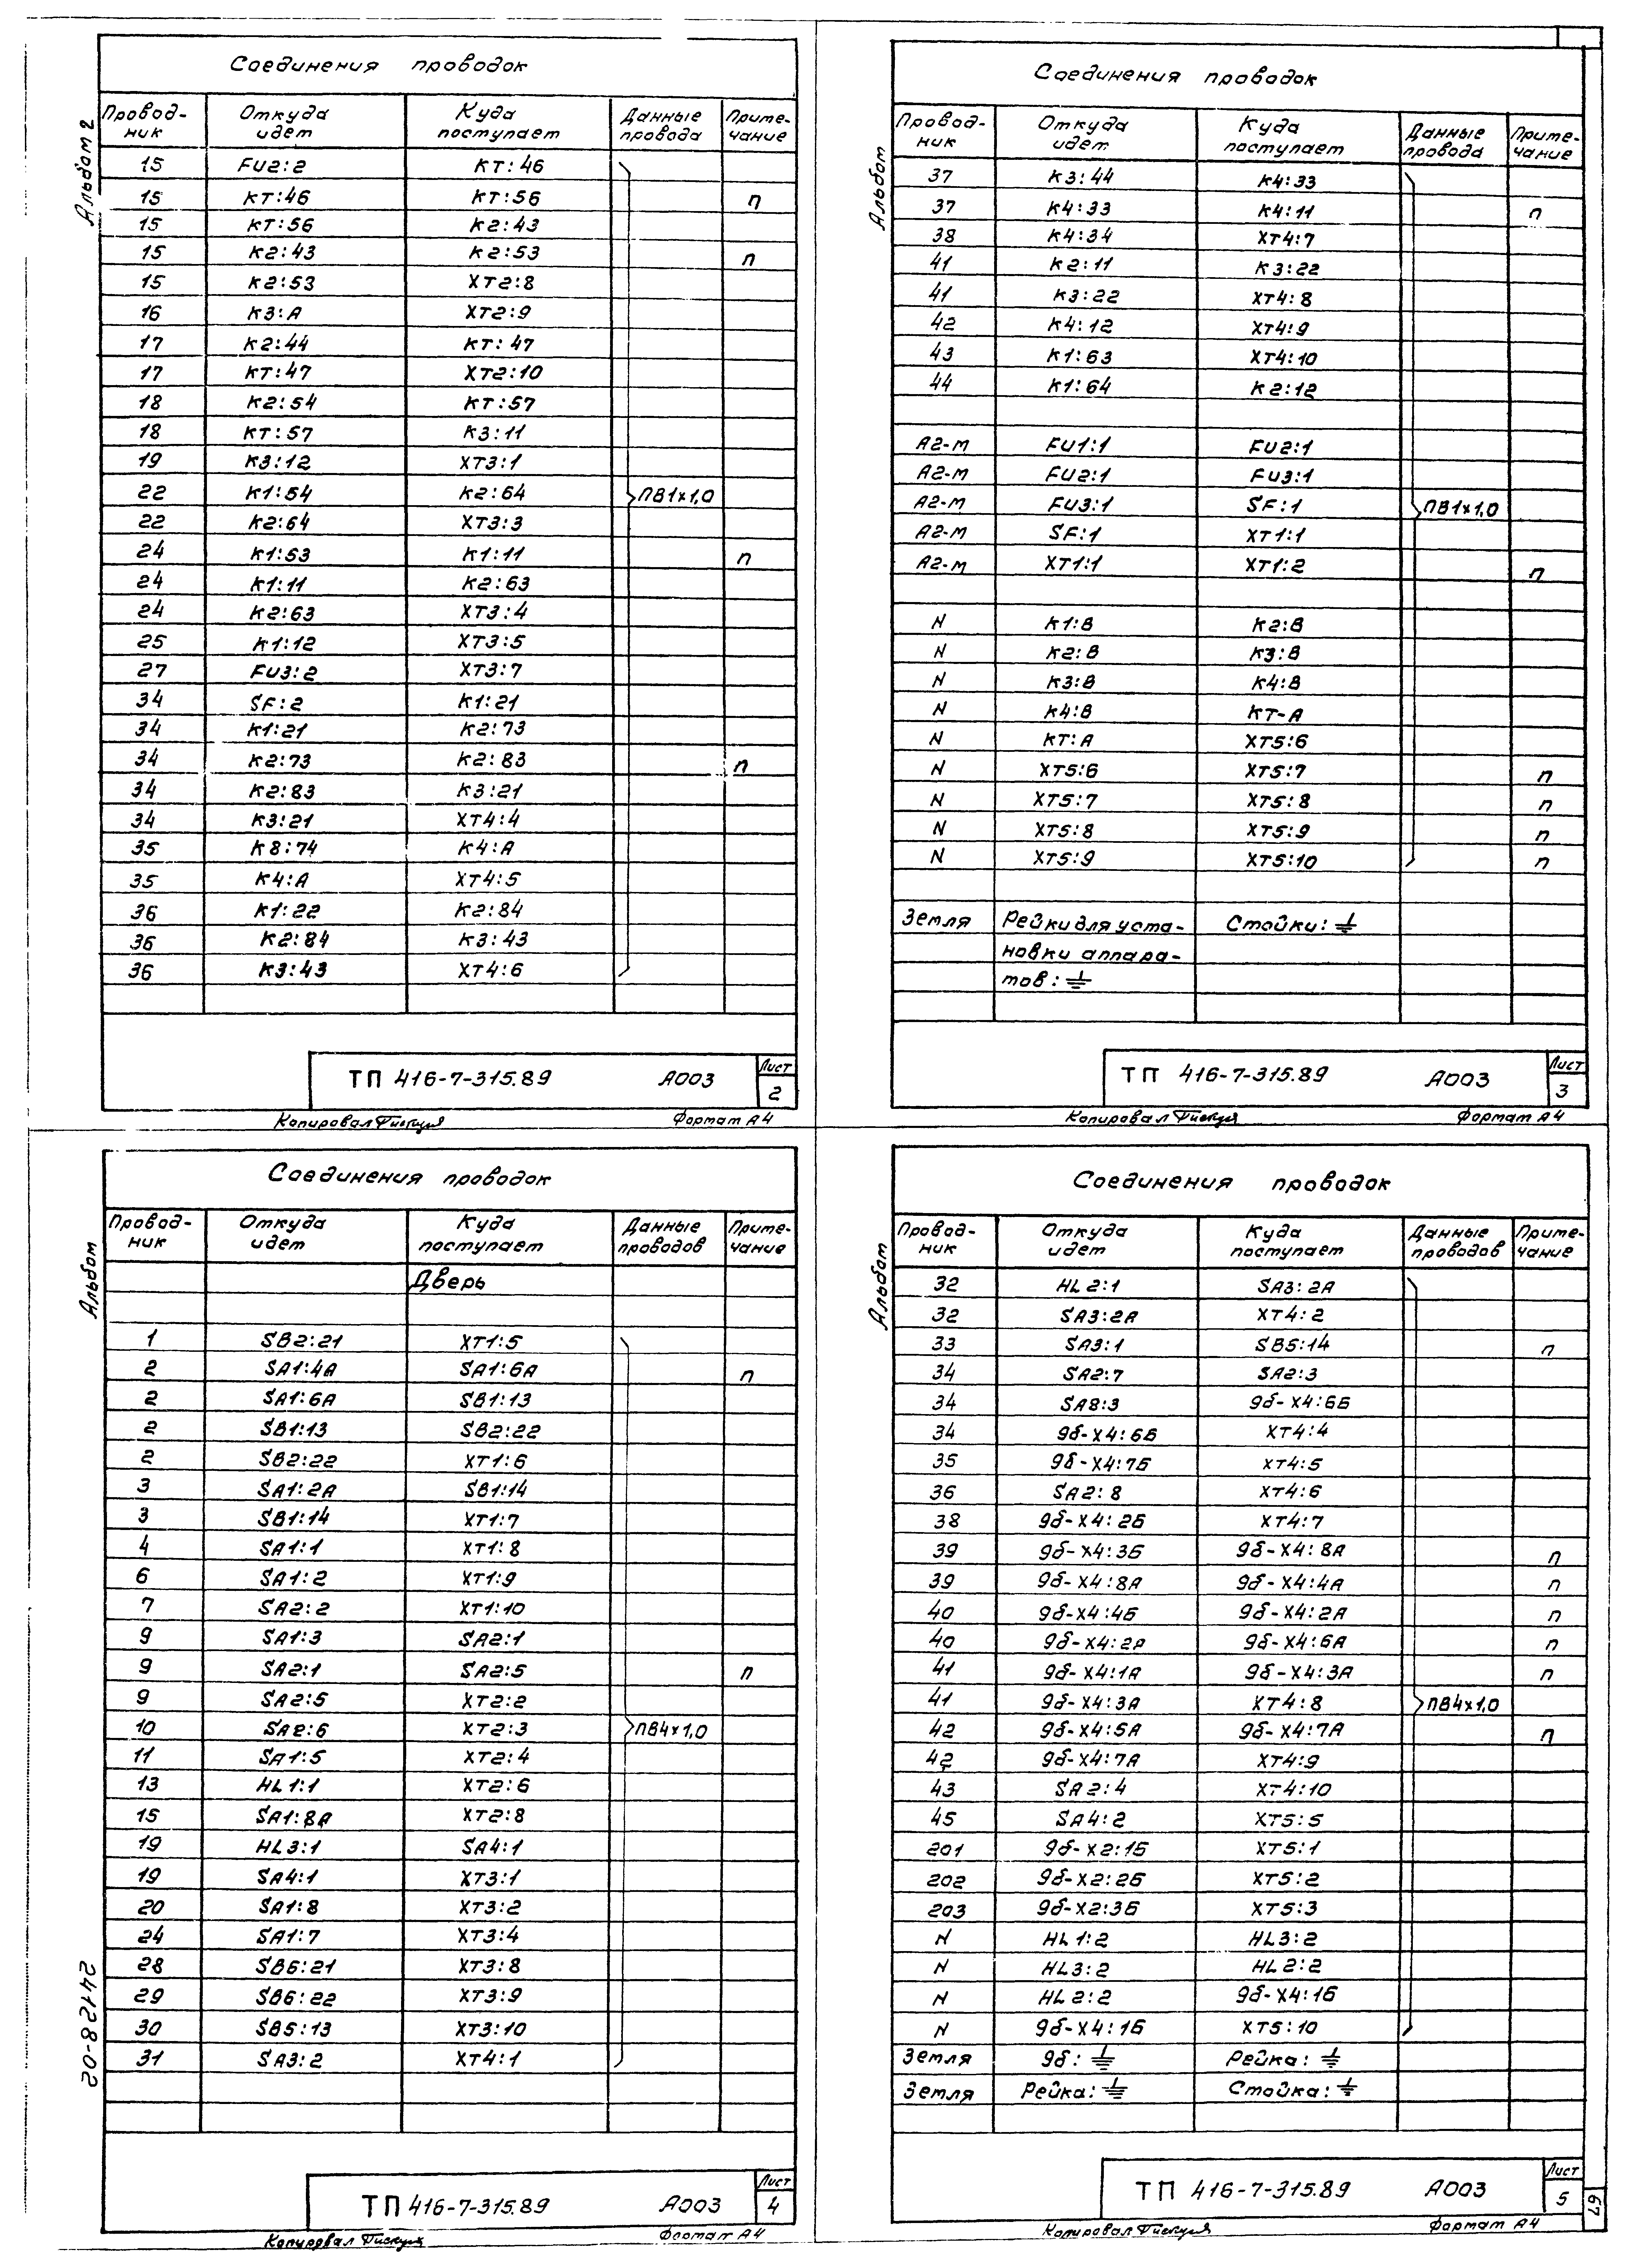 Альбом 2
Соединения проводок
Провод-ник Откуда идет Куда поступает Данные провода Приме-чание
15 FU2:2 КТ:46
15 КТ:46 КТ:56 п
15 КТ:56 К2:43
15 К2:43 К2:53 п
15 К2:53 ХТ2:8
16 К3:А ХТ2:9
17 К2:44 КТ:47
17 КТ:47 ХТ2:10
18 К2:54 КТ:57
18 КТ:57 К3:11
19 К3:12 ХТ3:1
22 К1:54 К2:64 ПВ1х1,0
22 К2:64 ХТ3:3
24 К1:53 К1:11 п
24 К1:11 К2:63
24 К2:63 ХТ3:4
25 К1:12 ХТ3:5
27 FU3:2 ХТ3:7
34 SF:2 К1:21
34 К1:21 К2:73
34 К2:73 К2:83 п
34 К2:83 К3:21
34 К3:21 ХТ4:4
35 К8:74 К4:А
35 К4:А ХТ4:5
36 К1:22 К2:84
36 К2:84 К3:43
36 К3:43 ХТ4:6
ТП 416-7-315.89 А003 Лист 2
Копировал Формат А4
Альбом
Соединения проводок
Провод-ник Откуда идет Куда поступает Данные провода Приме-чание
37 К3:44 К4:33
37 К4:33 К4:11 п
38 К4:34 ХТ4:7
41 К2:11 К3:22
41 К3:22 ХТ4:8
42 К4:12 ХТ4:9
43 К1:63 ХТ4:10
44 К1:64 К2:12
А2-М FU1:1 FU2:1
А2-М FU2:1 FU3:1
А2-М FU3:1 SF:1 ПВ1х1,0
А2-М SF:1 ХТ1:1
А2-М ХТ1:1 ХТ1:2 п
N К1:В К2:В
N К2:В К3:В
N К3:В К4:В
N К4:В КТ-А
N КТ:А ХТ5:6
N ХТ5:6 ХТ5:7 п
N ХТ5:7 ХТ5:8 п
N ХТ5:8 ХТ5:9 п
N ХТ5:9 ХТ5:10 п
Земля Рейки для уста- Стойки: ⏚
новки аппара-
тов: ⏚
ТП 416-7-315.89 А003 Лист 3
Копировал Формат А4
Альбом
Соединения проводок
Провод-ник Откуда идет Куда поступает Данные проводов Приме-чание
Дверь
1 SB2:21 ХТ1:5
2 SA1:4А SA1:6А п
2 SA1:6А SB1:13
2 SB1:13 SB2:22
2 SB2:22 ХТ1:6
3 SA1:2А SB1:14
3 SB1:14 ХТ1:7
4 SA1:1 ХТ1:8
6 SA1:2 ХТ1:9
7 SA2:2 ХТ1:10
9 SA1:3 SA2:1
9 SA2:1 SA2:5 п
9 SA2:5 ХТ2:2
10 SA2:6 ХТ2:3 ПВ4х1,0
11 SA1:5 ХТ2:4
13 HL1:1 ХТ2:6
15 SA1:8А ХТ2:8
19 HL3:1 SA4:1
19 SA4:1 ХТ3:1
20 SA1:8 ХТ3:2
24 SA1:7 ХТ3:4
28 SB6:21 ХТ3:8
29 SB6:22 ХТ3:9
30 SB5:13 ХТ3:10
31 SA3:2 ХТ4:1
24128-02
ТП 416-7-315.89 А003 Лист 4
Копировал Формат А4
Альбом
Соединения проводок
Провод-ник Откуда идет Куда поступает Данные проводов Приме-чание
32 HL2:1 SA3:2А
32 SA3:2А ХТ4:2
33 SA3:1 SB5:14 п
34 SA2:7 SA2:3
34 SA8:3 9δ-Х4:6Б
34 9δ-Х4:6Б ХТ4:4
35 9δ-Х4:7Б ХТ4:5
36 SA2:8 ХТ4:6
38 9δ-Х4:2Б ХТ4:7
39 9δ-Х4:3Б 9δ-Х4:8А п
39 9δ-Х4:8А 9δ-Х4:4А п
40 9δ-Х4:4Б 9δ-Х4:2А п
40 9δ-Х4:2А 9δ-Х4:6А п
41 9δ-Х4:1А 9δ-Х4:3А п
41 9δ-Х4:3А ХТ4:8 ПВ4х1,0
42 9δ-Х4:5А 9δ-Х4:7А п
42 9δ-Х4:7А ХТ4:9
43 SA2:4 ХТ4:10
45 SA4:2 ХТ5:5
201 9δ-Х2:1Б ХТ5:1
202 9δ-Х2:2Б ХТ5:2
203 9δ-Х2:3Б ХТ5:3
N HL1:2 HL3:2
N HL3:2 HL2:2
N HL2:2 9δ-Х4:1Б
N 9δ-Х4:1Б ХТ5:10
Земля 9δ: ⏚ Рейка: ⏚
Земля Рейка: ⏚ Стойка: ⏚
ТП 416-7-315.89 А003 Лист 5
Копировал Формат А4
67